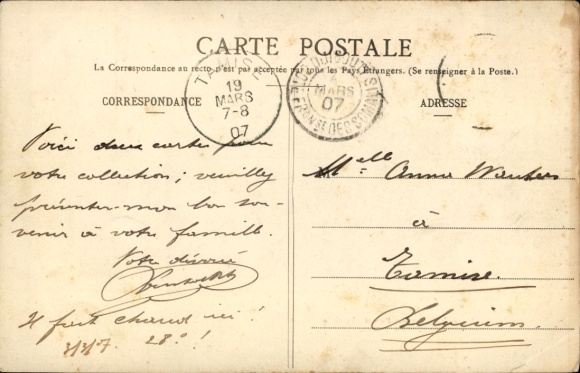 CARTE POSTALE
La Correspondance au recto n'est pas acceptée par tous les Pays Étrangers. (Se renseigner à la Poste.)
TAMISE
19
MARS
7-8
07
DJIBOUTI
MARS
07
CORRESPONDANCE
ADRESSE
Voici deux cartes pour
votre collection; veuillez
présenter mon bon sou-
venir à votre famille.
Votre dévoué
Il fait chaud ici!
3/3/07. 28°!
Melle Anna Wauters
à
Tamise.
Belgium